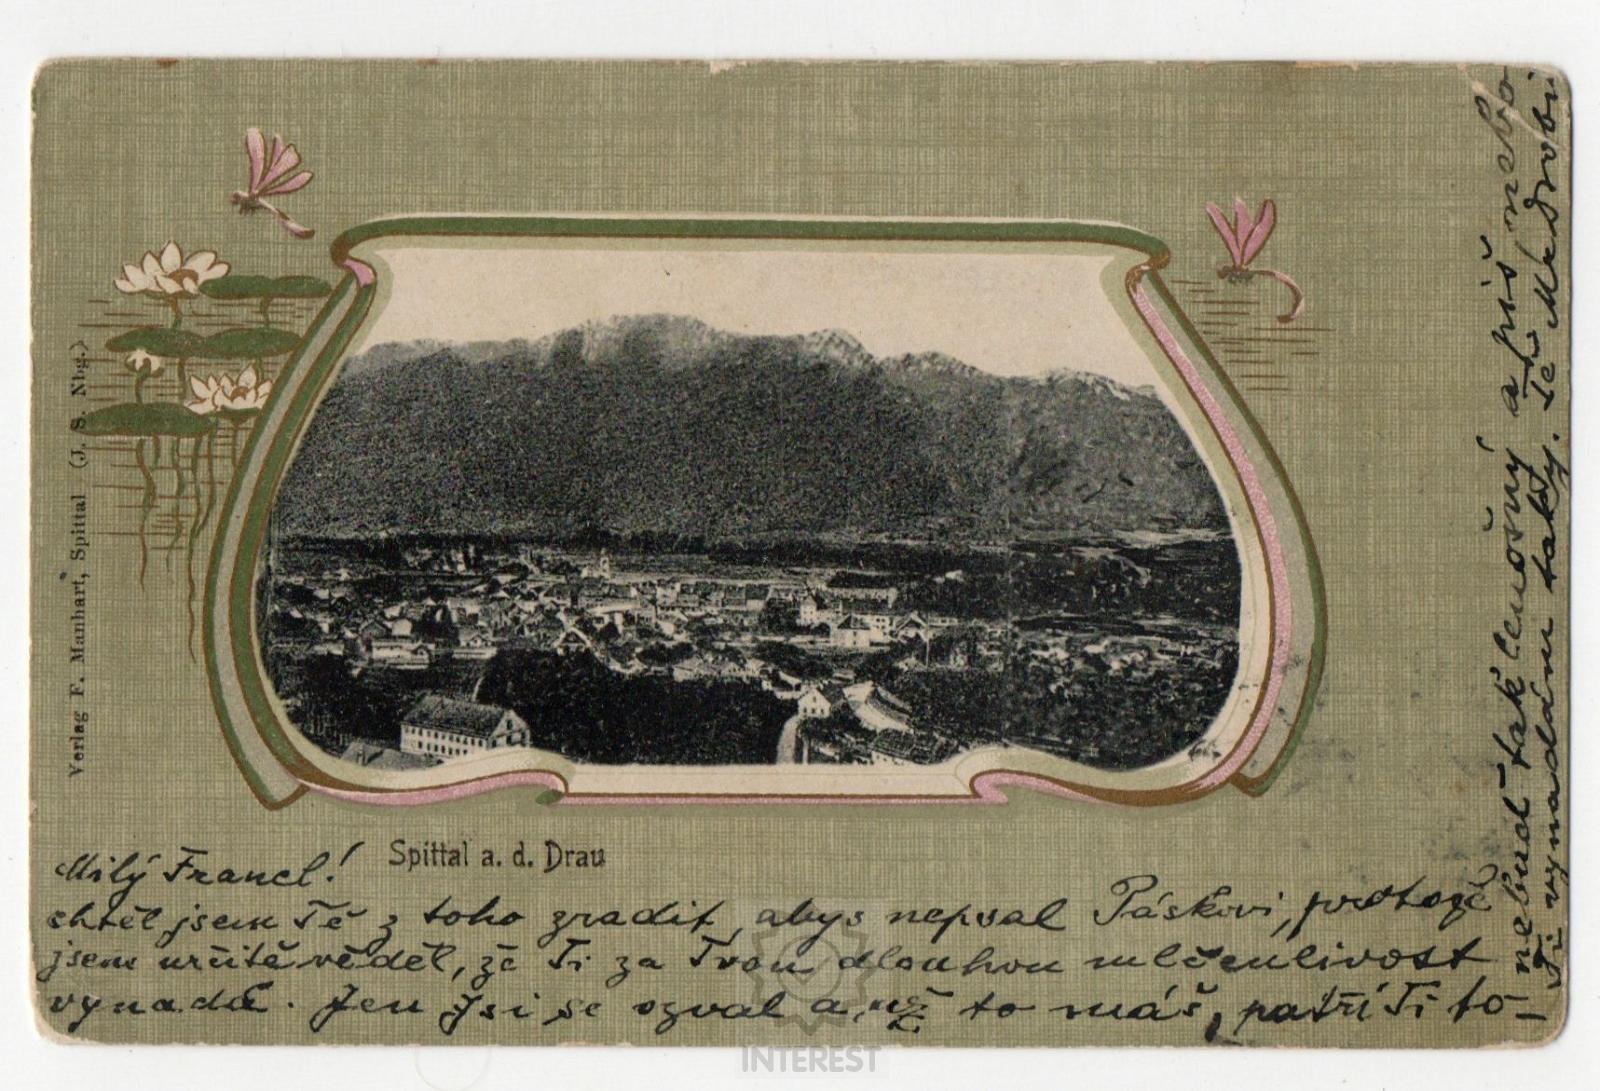 Verlag F. Manhart, Spittal (J. S. Nbg.)
Spittal a. d. Drau
Milý Francl!
chtěl jsem Tě z toho zradit, abys nepsal Páskovi, protože
jsem určitě věděl, že Ti za Tvou dlouhou mlčenlivost
vynadá. Jen Jsi se ozval a už to máš, patří Ti to –
nebuď tak lenošný a piš nebo
Ti vynadám taky. Tě
INTEREST